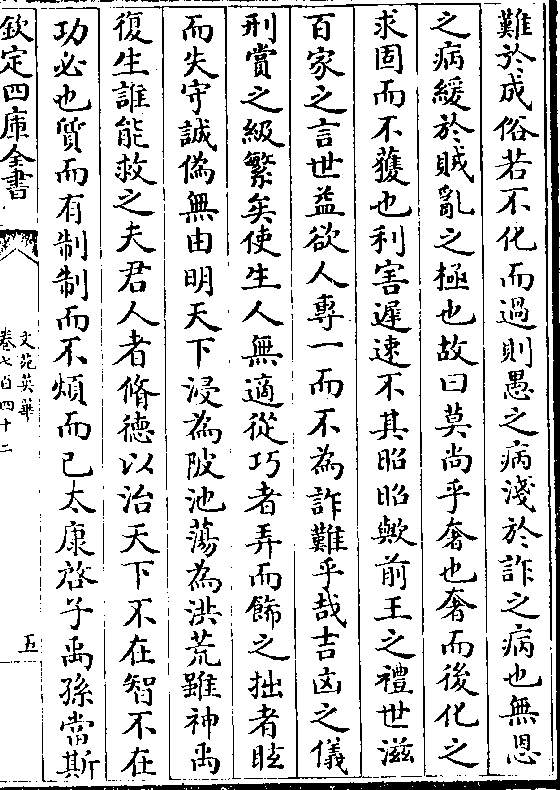 難於成俗若不化而過則愚之病淺於詐之病也無恩
之病緩於賊亂之極也故曰莫尚乎奢也奢而後化之
求固而不獲也利害遲速不其昭昭歟前王之禮世滋
百家之言世益欲人專一而不為詐難乎哉吉凶之儀
刑賞之級繁矣使生人無適從巧者弄而飾之拙者眩
而失守誠偽無由明天下浸為陂池蕩為洪荒雖神禹
復生誰能救之夫君人者脩德以治天下不在智不在
功必也質而有制制而不煩而已太康啓子禹孫當斯
欽定四庫全書
文苑英華
卷七百四十二
五